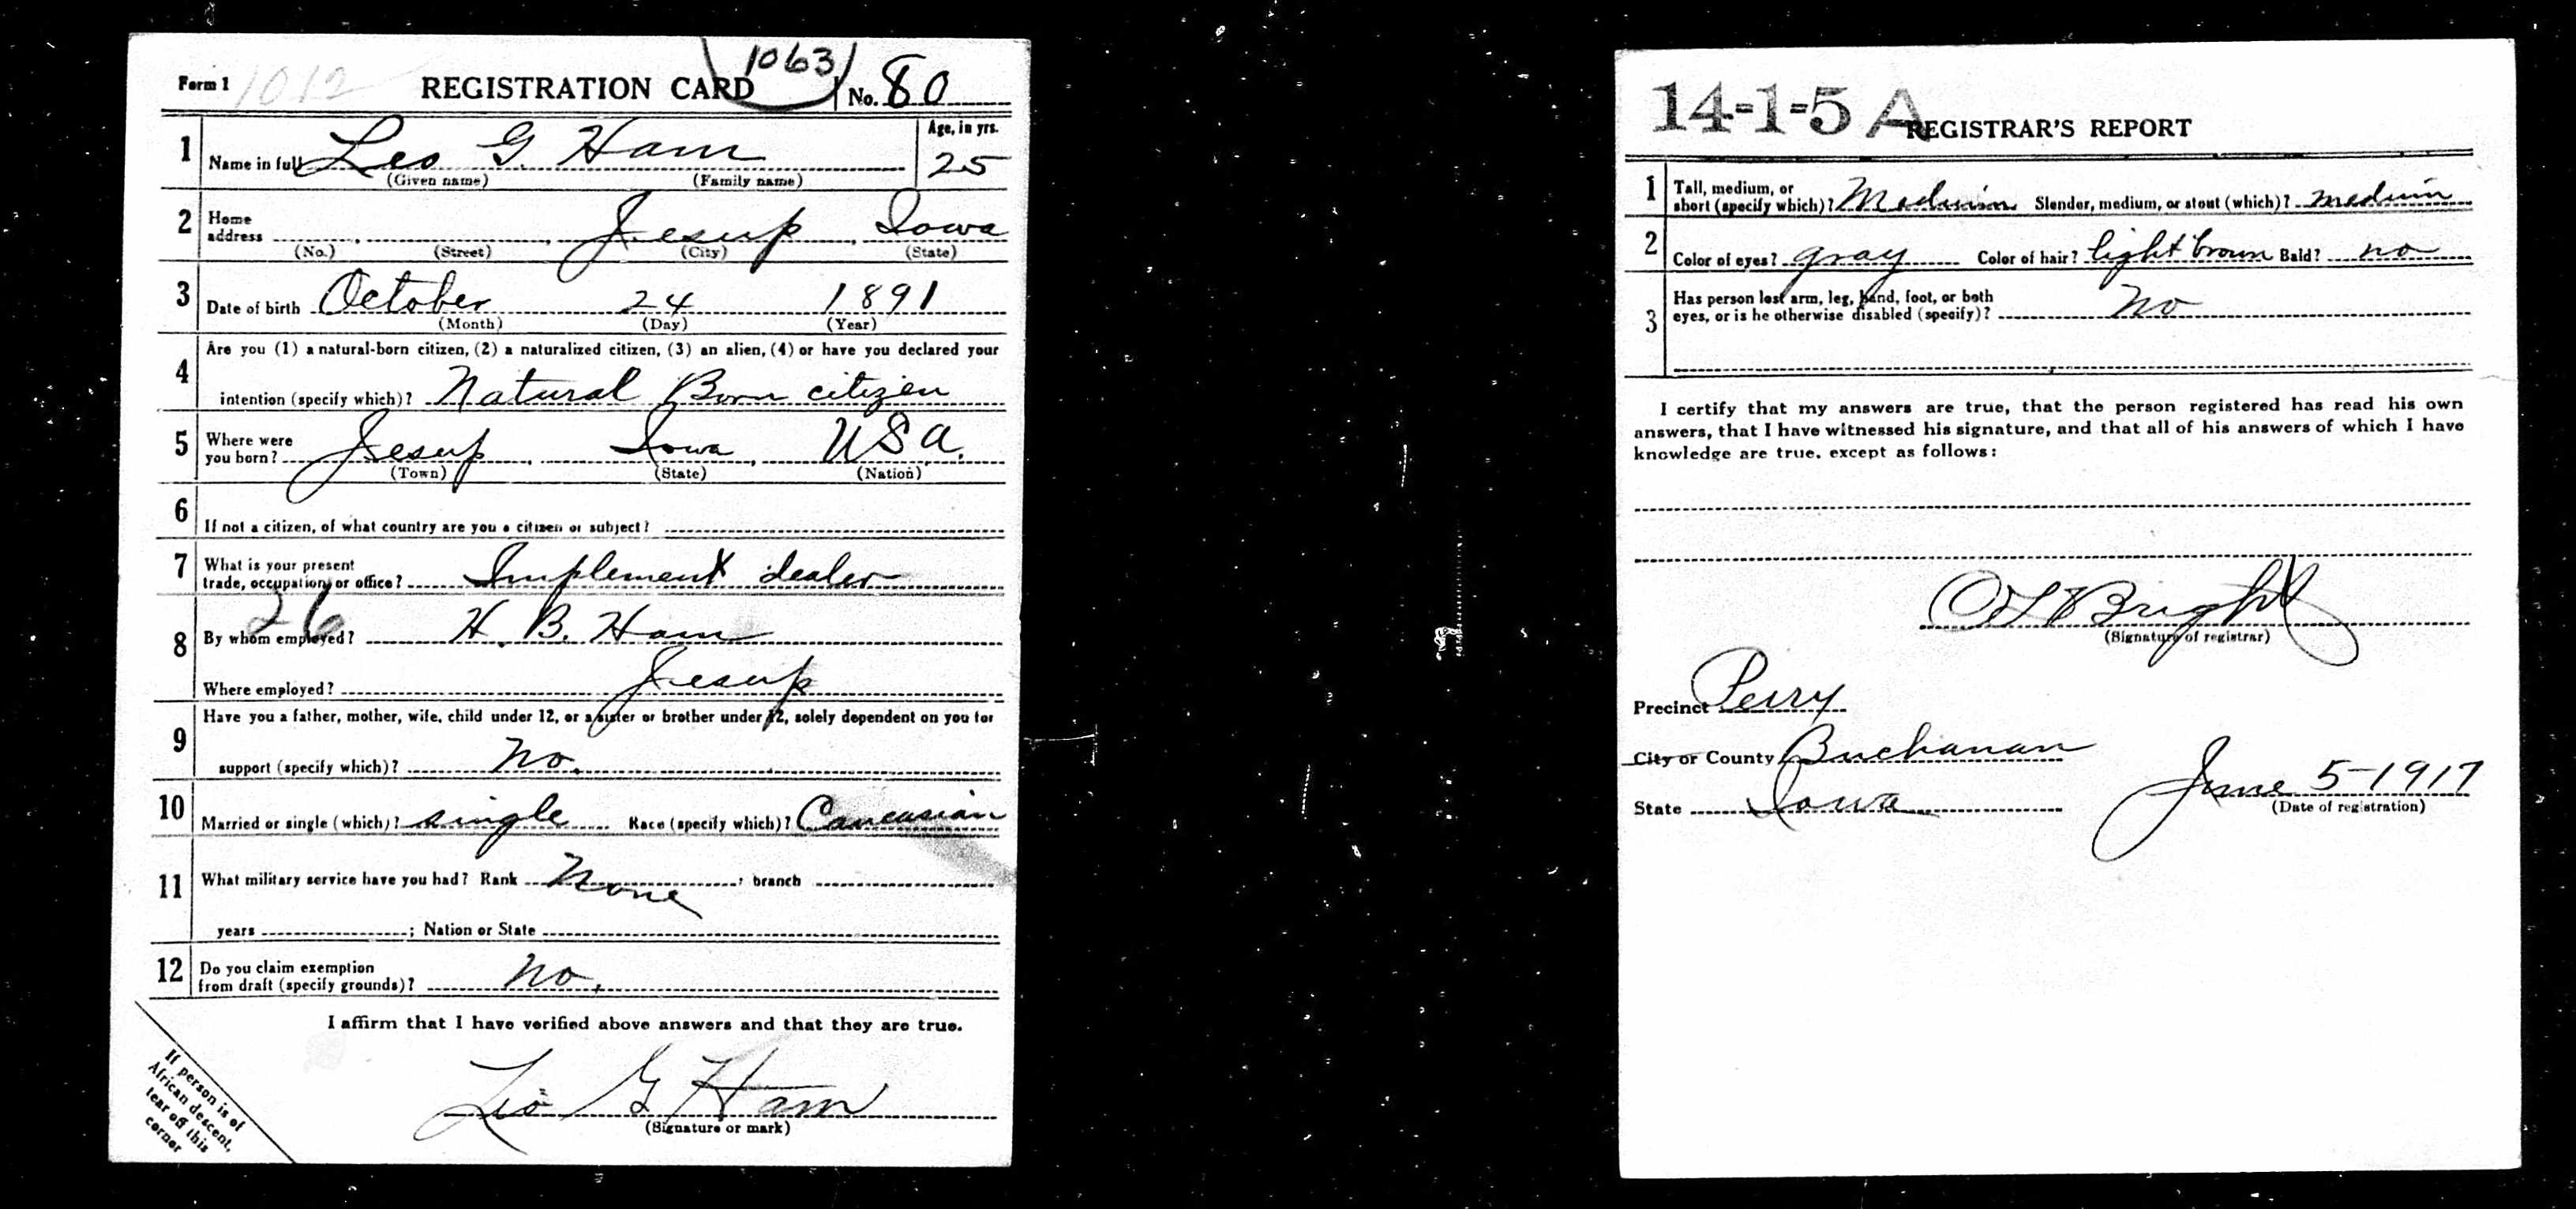 1063
Form 1 1012 REGISTRATION CARD No. 80
1 Name in full Leo G. Ham Age, in yrs. 25
(Given name) (Family name)
2 Home address Jesup Iowa
(No.) (Street) (City) (State)
3 Date of birth October 24 1891
(Month) (Day) (Year)
4 Are you (1) a natural-born citizen, (2) a naturalized citizen, (3) an alien, (4) or have you declared your
intention (specify which)? Natural Born citizen
5 Where were you born? Jesup Iowa USA.
(Town) (State) (Nation)
6 If not a citizen, of what country are you a citizen or subject?
7 What is your present
trade, occupation, or office? Implement dealer
26
8 By whom employed? H. B. Ham
Where employed? Jesup
9 Have you a father, mother, wife, child under 12, or a sister or brother under 12, solely dependent on you for
support (specify which)? No.
10 Married or single (which)? single Race (specify which)? Caucasian
11 What military service have you had? Rank None ; branch
years ; Nation or State
12 Do you claim exemption
from draft (specify grounds)? No.
I affirm that I have verified above answers and that they are true.
Leo G Ham
(Signature or mark)
If person is of
African descent,
tear off this
corner
14-1-5 A REGISTRAR'S REPORT
1 Tall, medium, or
short (specify which)? Medium Slender, medium, or stout (which)? medium
2 Color of eyes? gray Color of hair? light brown Bald? no
3 Has person lost arm, leg, hand, foot, or both
eyes, or is he otherwise disabled (specify)? No
I certify that my answers are true, that the person registered has read his own
answers, that I have witnessed his signature, and that all of his answers of which I have
knowledge are true, except as follows:
O L Bright
(Signature of registrar)
Precinct Perry
City or County Buchanan
State Iowa June 5-1917
(Date of registration)